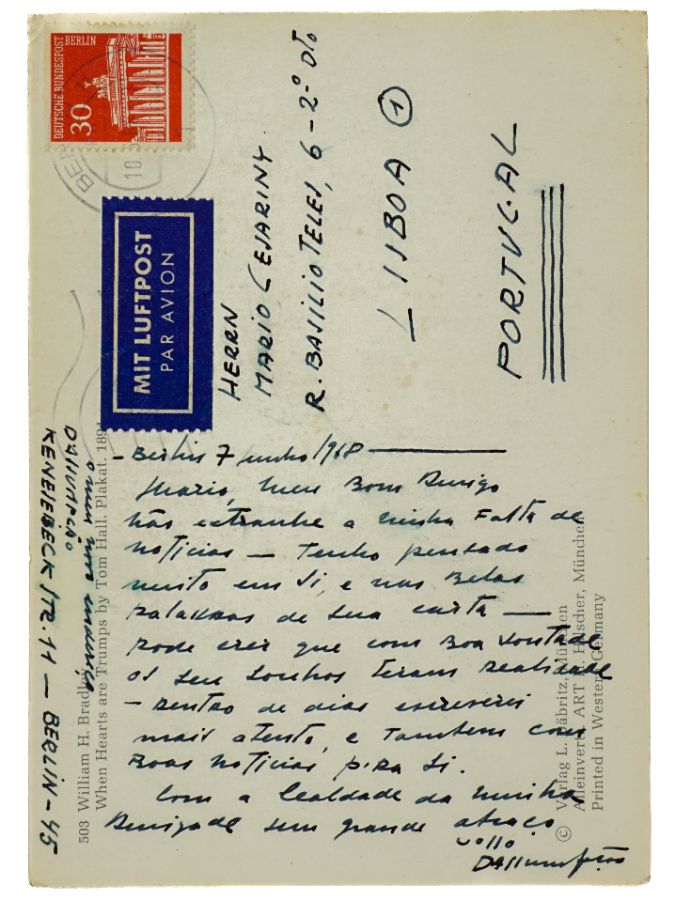 DEUTSCHE BUNDESPOST
BERLIN
30
10.
MIT LUFTPOST
PAR AVION
HERRN
MARIO CESARINY
R. BASILIO TELES, 6-2º Dto
LISBOA (1)
PORTUGAL
- Berlin 7 Junho/968
Mario, meu Bom Amigo
não extranhe a minha Falta de
noticias - Tenho pensado
muito em Si, e nas Belas
palavras de sua carta -
pode crer que com Boa Vontade
os seus sonhos teram Realidade
- Dentro de dias escreverei
mais atento, e tambem com
Boas noticias p.ra Si.
Com a lealdade da minha
Amizade um grande abraço
D'Assumpção
o meu novo endereço
D'ASSUMPÇÃO
STR. 11 - BERLIN - 45
503 William H. Bradley
When Hearts are Trumps by Tom Hall. Plakat. 189
© Verlag L. Däbritz, München
Alleinvertr. ART München
Printed in Western Germany